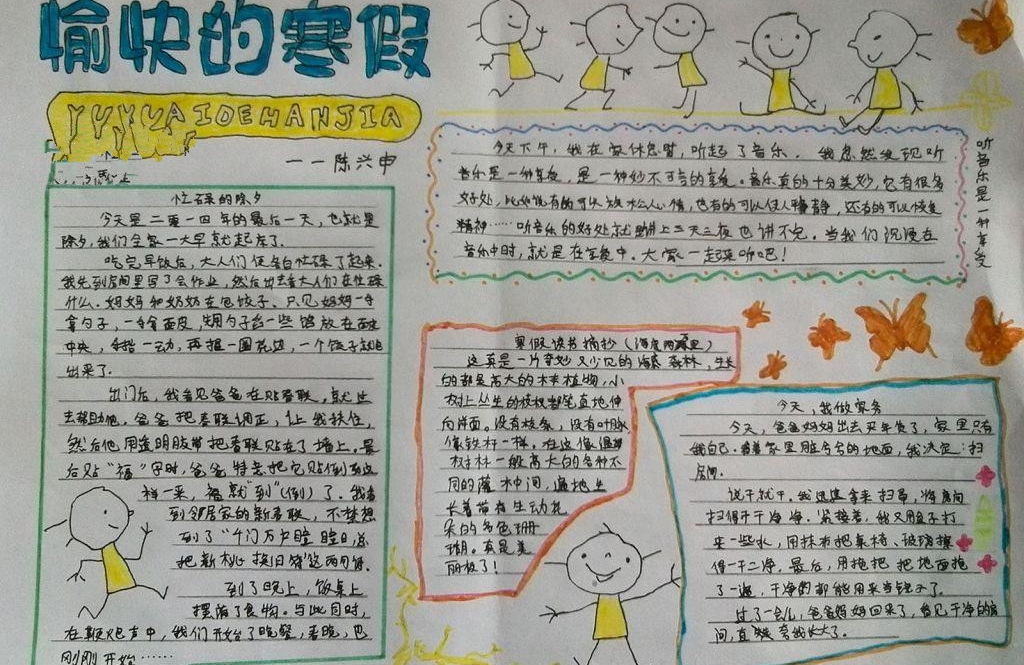 愉快的寒假
YUKUAIDEHANJIA
——陈兴申
忙碌的除夕
今天是二零一四年的最后一天，也就是
除夕，我们全家一大早就起床了。
吃完早饭后，大人们便各自忙碌了起来。
我先到房间里写了会作业，然后出去看大人们在忙碌
什么。妈妈和奶奶在包饺子。只见妈妈一手
拿勺子，一手拿面皮，用勺子舀一些馅放在面皮
中央，手指一动，再捏一圈花边，一个饺子就包
出来了。
出门后，我看见爸爸在贴春联，就上
去帮助他。爸爸把春联调正，让我扶住，
然后他用透明胶带把春联贴在了墙上。最
后贴“福”字时，爸爸特意把它贴倒
样一来，福就“到”（倒）了。我看
到邻居家的新春联，不禁想
到了“千门万户曈曈日，总
把新桃换旧符”这两句诗。
到了晚上，饭桌上
摆满了食物。与此同时，
在鞭炮声中，我们开始了晚餐，春晚，也
刚刚开始……
今天下午，我在家休息时，听起了音乐。我忽然发现听
音乐是一种享受，是一种妙不可言的享受。音乐真的十分美妙，它有很多
好处，比如说有的可以放松人心情，也有的可以使人平静，还有的可以恢复
精神……听音乐的好处就讲上三天三夜也讲不完。当我们沉浸在
音乐中时，就是在享受中。大家一起来听吧！
听音乐是一种享受
寒假读书摘抄（海底两万里）
这真是一片奇妙又少见的海底森林，生长
的都是高大的木本植物，小
树上丛生的枝杈都笔直地伸
向洋面。没有枝条，没有叶脉，
像铁杆一样。在这像温带
树林一般高大的各种不
同的灌木中间，遍地生
长着带有生动花
朵的各色珊
瑚。真是美
丽极了！
今天，我做家务
今天，爸爸妈妈出去买年货了，家里只有
我自己。看着家里脏兮兮的地面，我决定：扫
房间。
说干就干。我迅速拿来扫帚，将房间
扫得干干净净。紧接着，我又用盆子打
来一些水，用抹布把桌椅、玻璃擦
得一干二净。最后，用拖把把地面拖
了一遍，干净的都能用来当镜子了。
过了一会儿，爸爸妈妈回来了，看见干净的房
间，直夸我长大了。